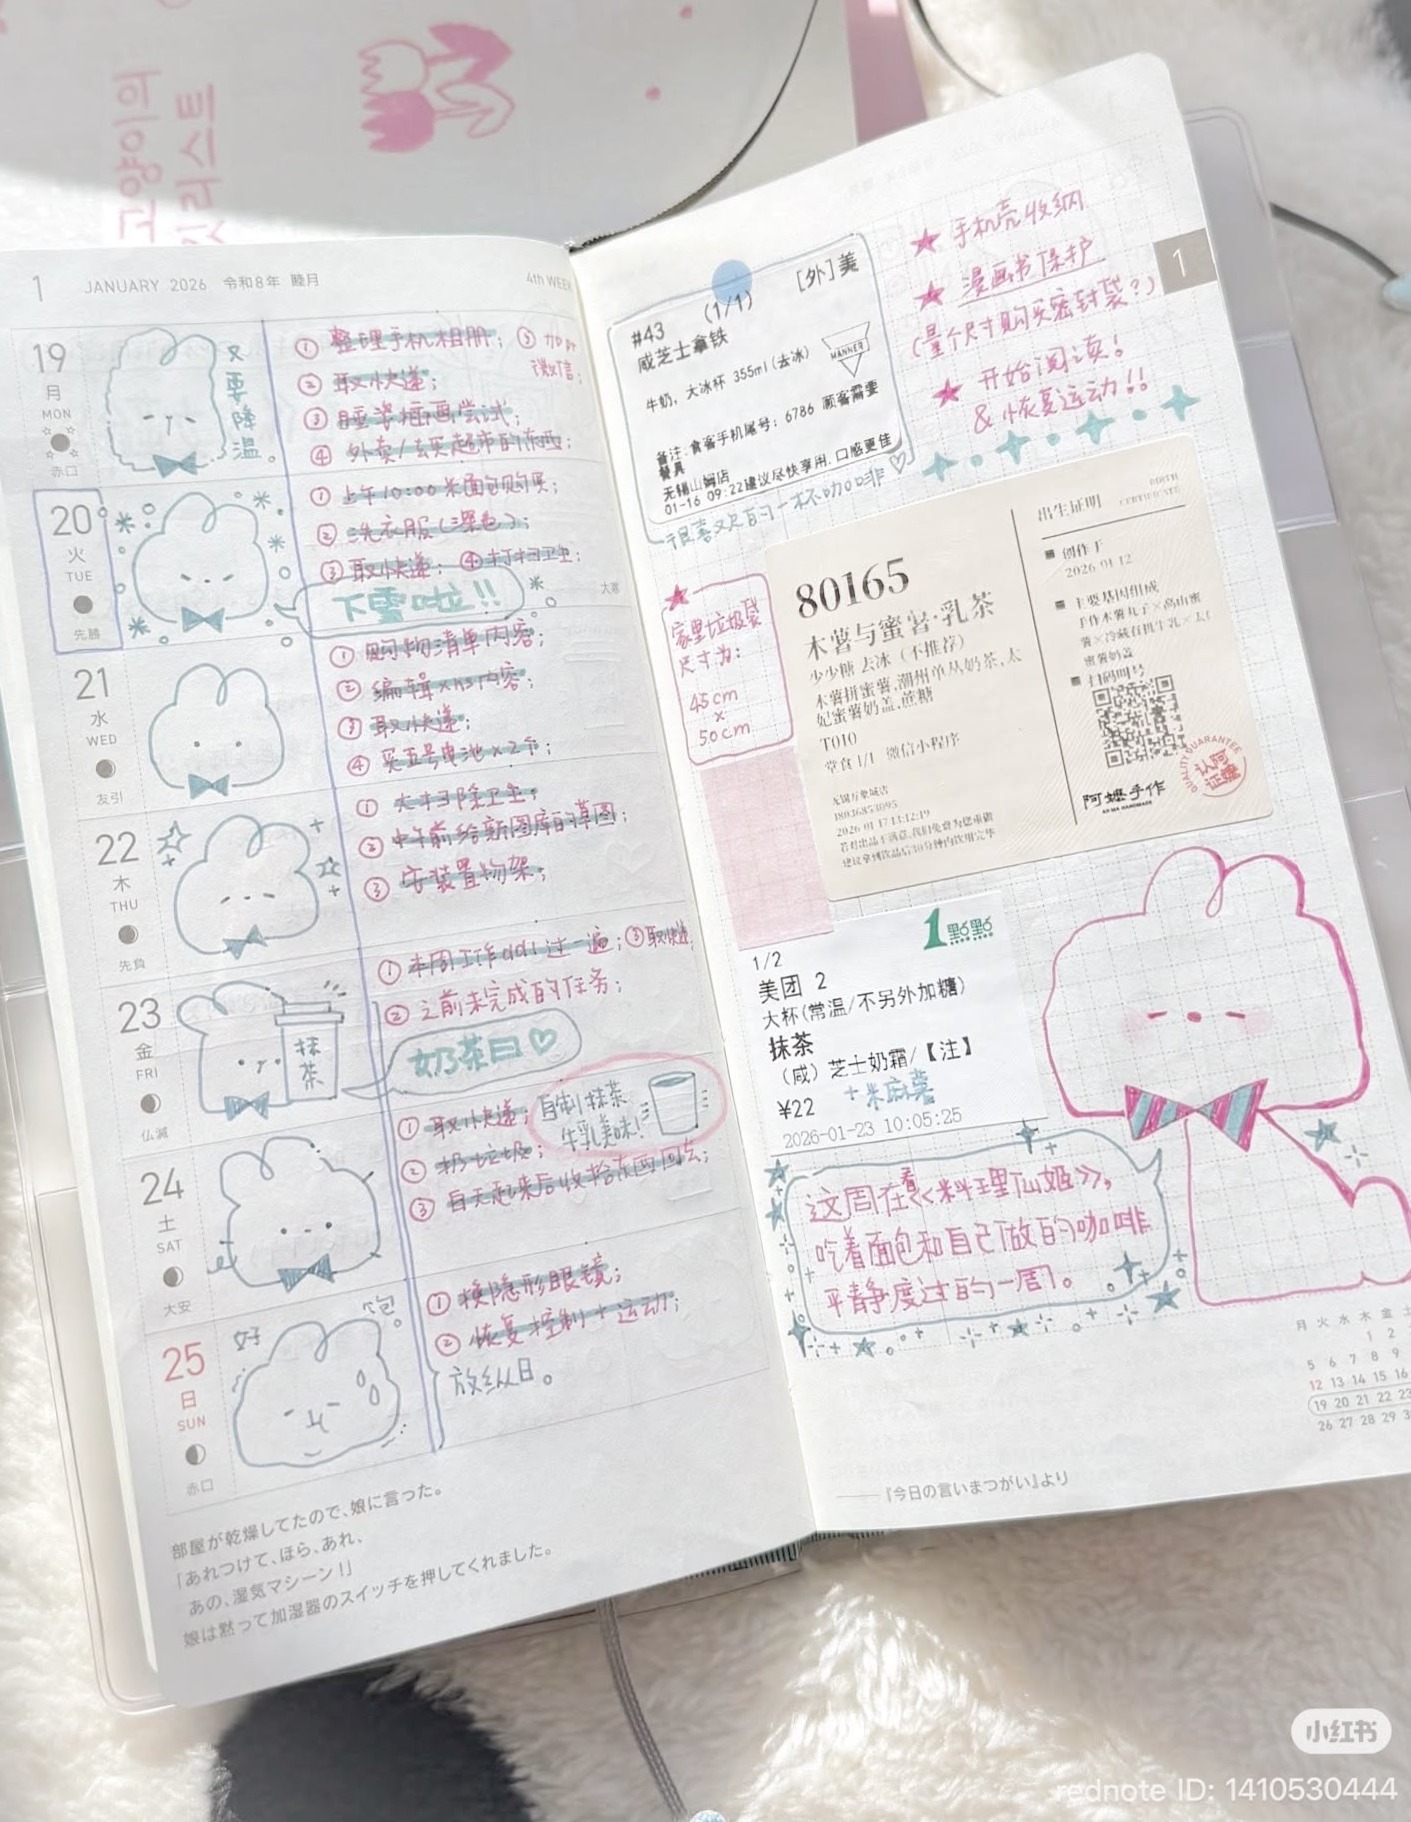 고양이의
리스트
1 JANUARY 2026 令和8年 睦月
4th WEEK
19
月
MON
赤口
又要降温。
① 整理手机相册;
② 取快递;
③ 睡姿插画尝试;
④ 外卖/去买超市的东西;
⑤ 加pr
微信;
20
火
TUE
先勝
① 上午10:00米面包购买;
② 洗衣服(深色);
③ 取快递; ④ 打扫卫生;
大寒
下雪啦!!
21
水
WED
友引
① 购物清单内容;
② 编辑xhs内容;
③ 取快递;
④ 买五号电池×2个;
22
木
THU
先負
① 大扫除卫生;
② 中午前给新图库的草图;
③ 安装置物架;
23
金
FRI
仏滅
抹茶
① 本周工作ddl过一遍; ③ 取快递
② 之前未完成的任务;
奶茶日♡
24
土
SAT
大安
① 取快递;
② 扔垃圾;
③ 白天起来后收拾东西回去;
自制抹茶
牛乳美味!
25
日
SUN
赤口
好饱。
① 换隐形眼镜;
② 恢复控制+运动;
放纵日。
部屋が乾燥してたので、娘に言った。
「あれつけて、ほら、あれ、
あの、湿気マシーン!」
娘は黙って加湿器のスイッチを押してくれました。
[外]美
#43 (1/1)
咸芝士拿铁
牛奶, 大冰杯 355ml(去冰)
MANNER
备注:食客手机尾号: 6786 顾客需要
餐具
无锡山姆店
01-16 09:22建议尽快享用,口感更佳
很喜欢的一杯咖啡♡
★ 手机壳收纳
★ 漫画书保护
(量个尺寸购买密封袋?)
★ 开始阅读!
& 恢复运动!!
1
★
家里垃圾袋
尺寸为:
45cm
×
50cm
80165
木薯与蜜薯·乳茶
少少糖 去冰(不推荐)
木薯拼蜜薯,潮州单丛奶茶,太
妃蜜薯奶盖,蔗糖
T010
堂食 1/1 微信小程序
无锡万象城店
18036853095
2026 01 17 13:12:19
若对出品不满意,我们免费为您重做
建议拿到饮品后30分钟内饮用完毕
出生证明
BIRTH
CERTIFICATE
创作于
2026 01 12
主要基因组成
手作木薯丸子×高山蜜
薯×冷藏有机牛乳×太
蜜薯奶盖
扫码叫号
QUALITY GUARANTEE
阿嬷手作
AH MA HANDMADE
1點點
1/2
美团 2
大杯(常温/不另外加糖)
抹茶
(咸)芝士奶霜/【注】
¥22 +米麻薯
2026-01-23 10:05:25
这周在看《料理仙姬》,
吃着面包和自己做的咖啡
平静度过的一周。
月 火 水 木 金 土
1 2
5 6 7 8 9
12 13 14 15 16
19 20 21 22 23
26 27 28 29 3
——『今日の言いまつがい』より
小红书
rednote ID: 1410530444